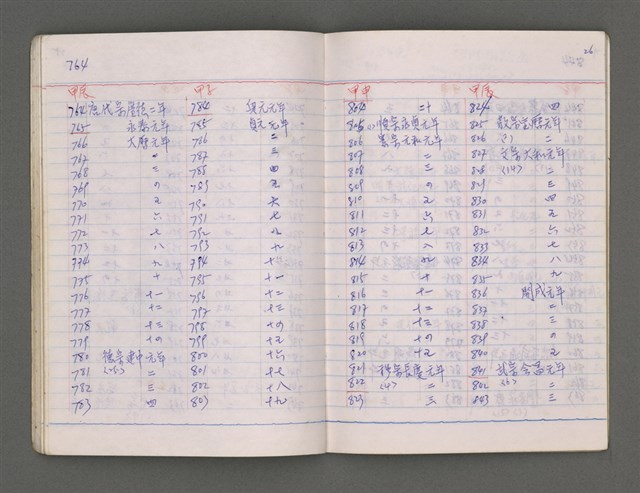 764
甲辰 甲子
764 唐代宗廣德二年 784 興元元年
765 永泰元年 785 貞元元年
766 大曆元年 786 二
767 二 787 三
768 三 788 四
769 四 789 五
770 五 790 六
771 六 791 七
772 七 792 八
773 八 793 九
774 九 794 十
775 十 795 十一
776 十一 796 十二
777 十二 797 十三
778 十三 798 十四
779 十四 799 十五
780 德宗建中元年 800 十六
781 二 801 十七
782 三 802 十八
783 四 803 十九
26
甲申 甲辰
804 二十 824 四
805 順宗永貞元年 825 敬宗宝曆元年
806 憲宗元和元年 826 二
807 二 827 文宗大和元年
808 三 828 (14) 二
809 四 829 三
810 五 830 四
811 六 831 五
812 七 832 六
813 八 833 七
814 九 834 八
815 十 835 九
816 十一 836 開成元年
817 十二 837 二
818 十三 838 三
819 十四 839 四
820 十五 840 五
821 穆宗長慶元年 841 武宗会昌元年
822 (4) 二 802 (6) 二
823 三 843 三